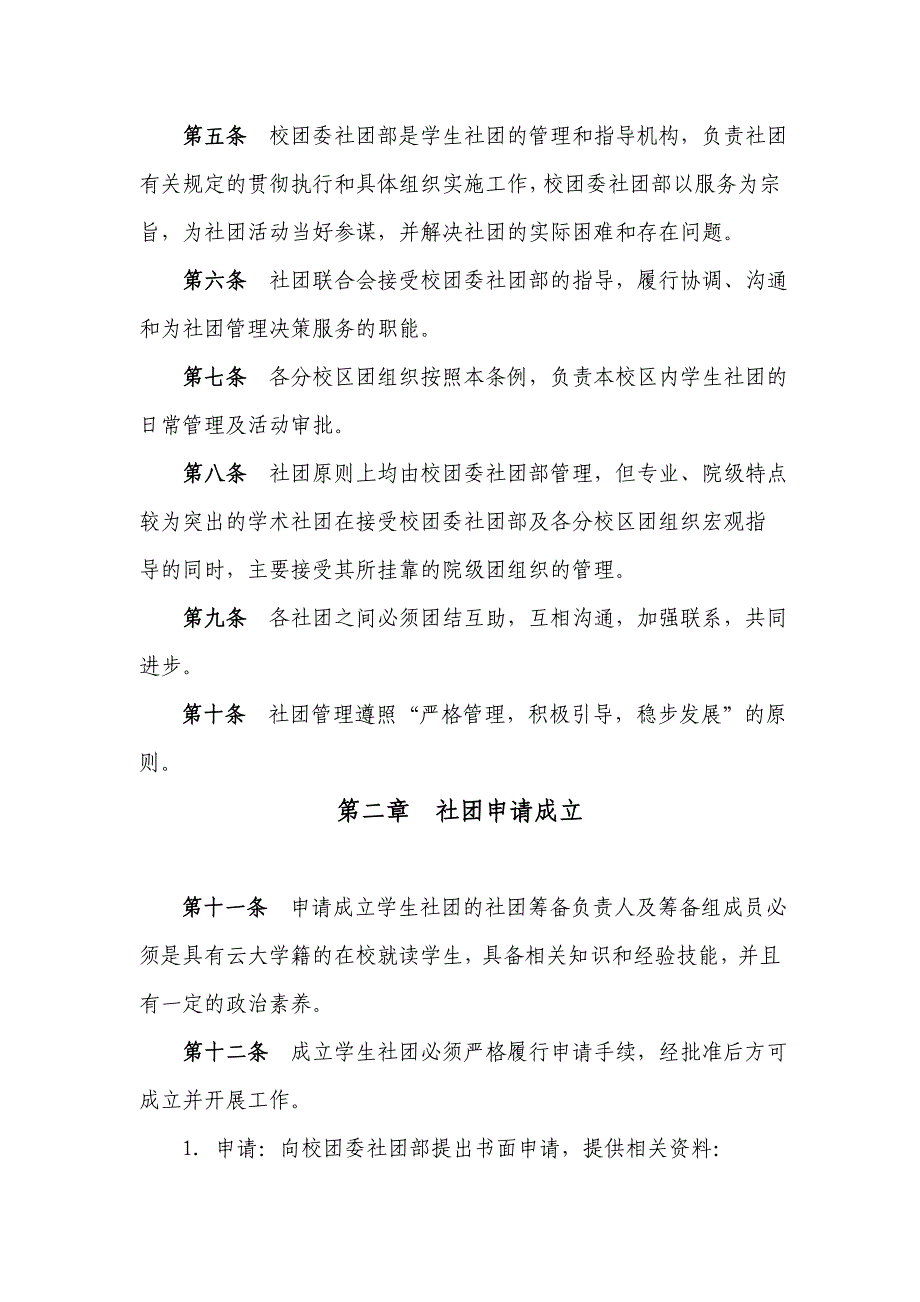 第五条　校团委社团部是学生社团的管理和指导机构，负责社团
有关规定的贯彻执行和具体组织实施工作，校团委社团部以服务为宗
旨，为社团活动当好参谋，并解决社团的实际困难和存在问题。
第六条　社团联合会接受校团委社团部的指导，履行协调、沟通
和为社团管理决策服务的职能。
第七条　各分校区团组织按照本条例，负责本校区内学生社团的
日常管理及活动审批。
第八条　社团原则上均由校团委社团部管理，但专业、院级特点
较为突出的学术社团在接受校团委社团部及各分校区团组织宏观指
导的同时，主要接受其所挂靠的院级团组织的管理。
第九条　各社团之间必须团结互助，互相沟通，加强联系，共同
进步。
第十条　社团管理遵照“严格管理，积极引导，稳步发展”的原
则。
第二章　社团申请成立
第十一条　申请成立学生社团的社团筹备负责人及筹备组成员必
须是具有云大学籍的在校就读学生，具备相关知识和经验技能，并且
有一定的政治素养。
第十二条　成立学生社团必须严格履行申请手续，经批准后方可
成立并开展工作。
1．申请：向校团委社团部提出书面申请，提供相关资料：